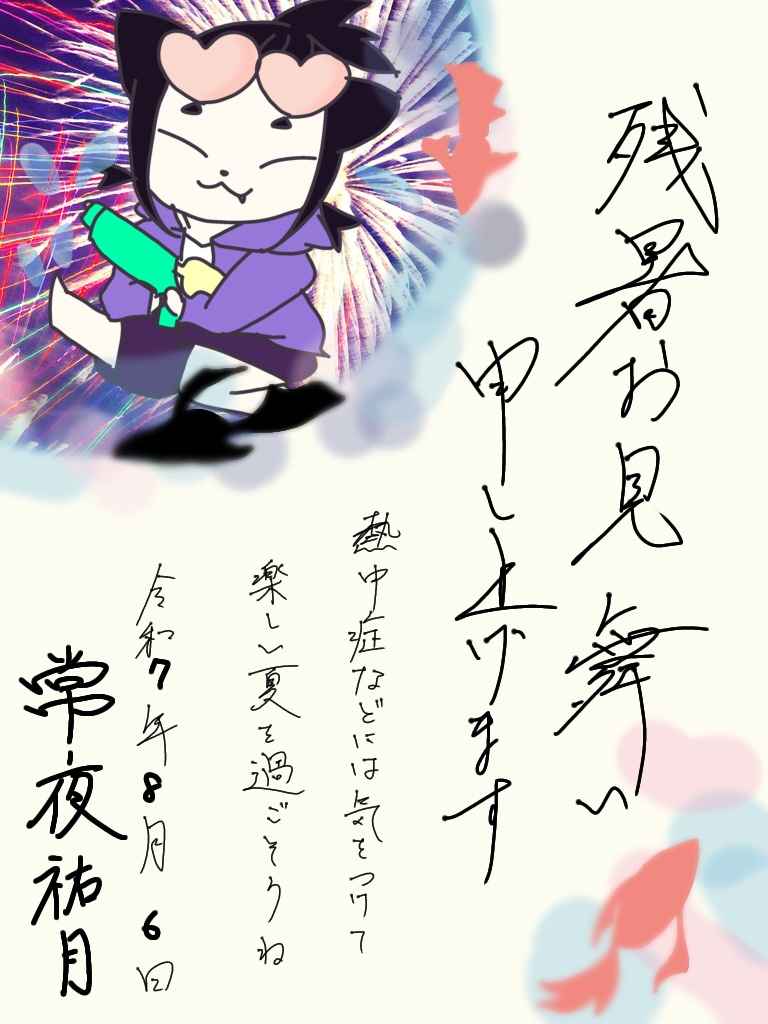 残暑お見舞い
申し上げます
熱中症などには気をつけて
楽しい夏を過ごそうね
令和7年8月6日
常夜祐月